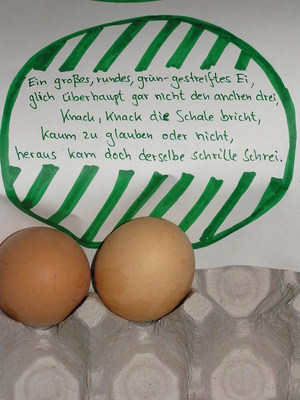 Ein großes, rundes, grün-gestreiftes Ei,
glich überhaupt gar nicht den andren drei,
Knack, Knack die Schale bricht,
kaum zu glauben oder nicht,
heraus kam doch derselbe schrille Schrei.